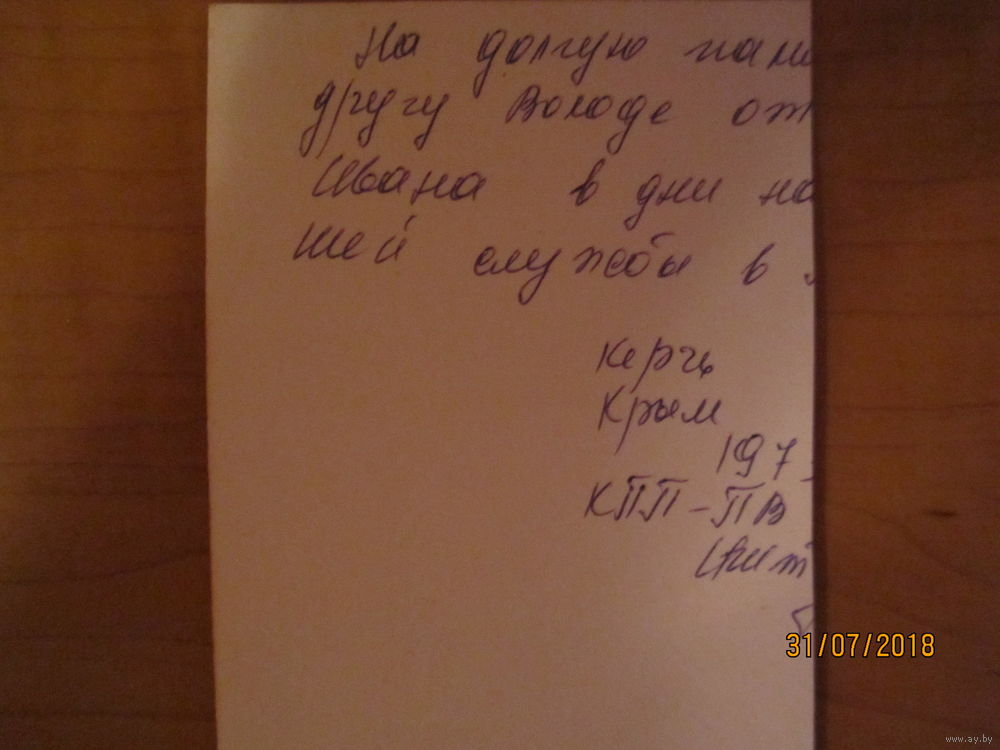 На долгую пам
другу Володе от
Ивана в дни на
шей службы в
Керчь
Крым
197
КПП-ПВ
31/07/2018
www.ay.by